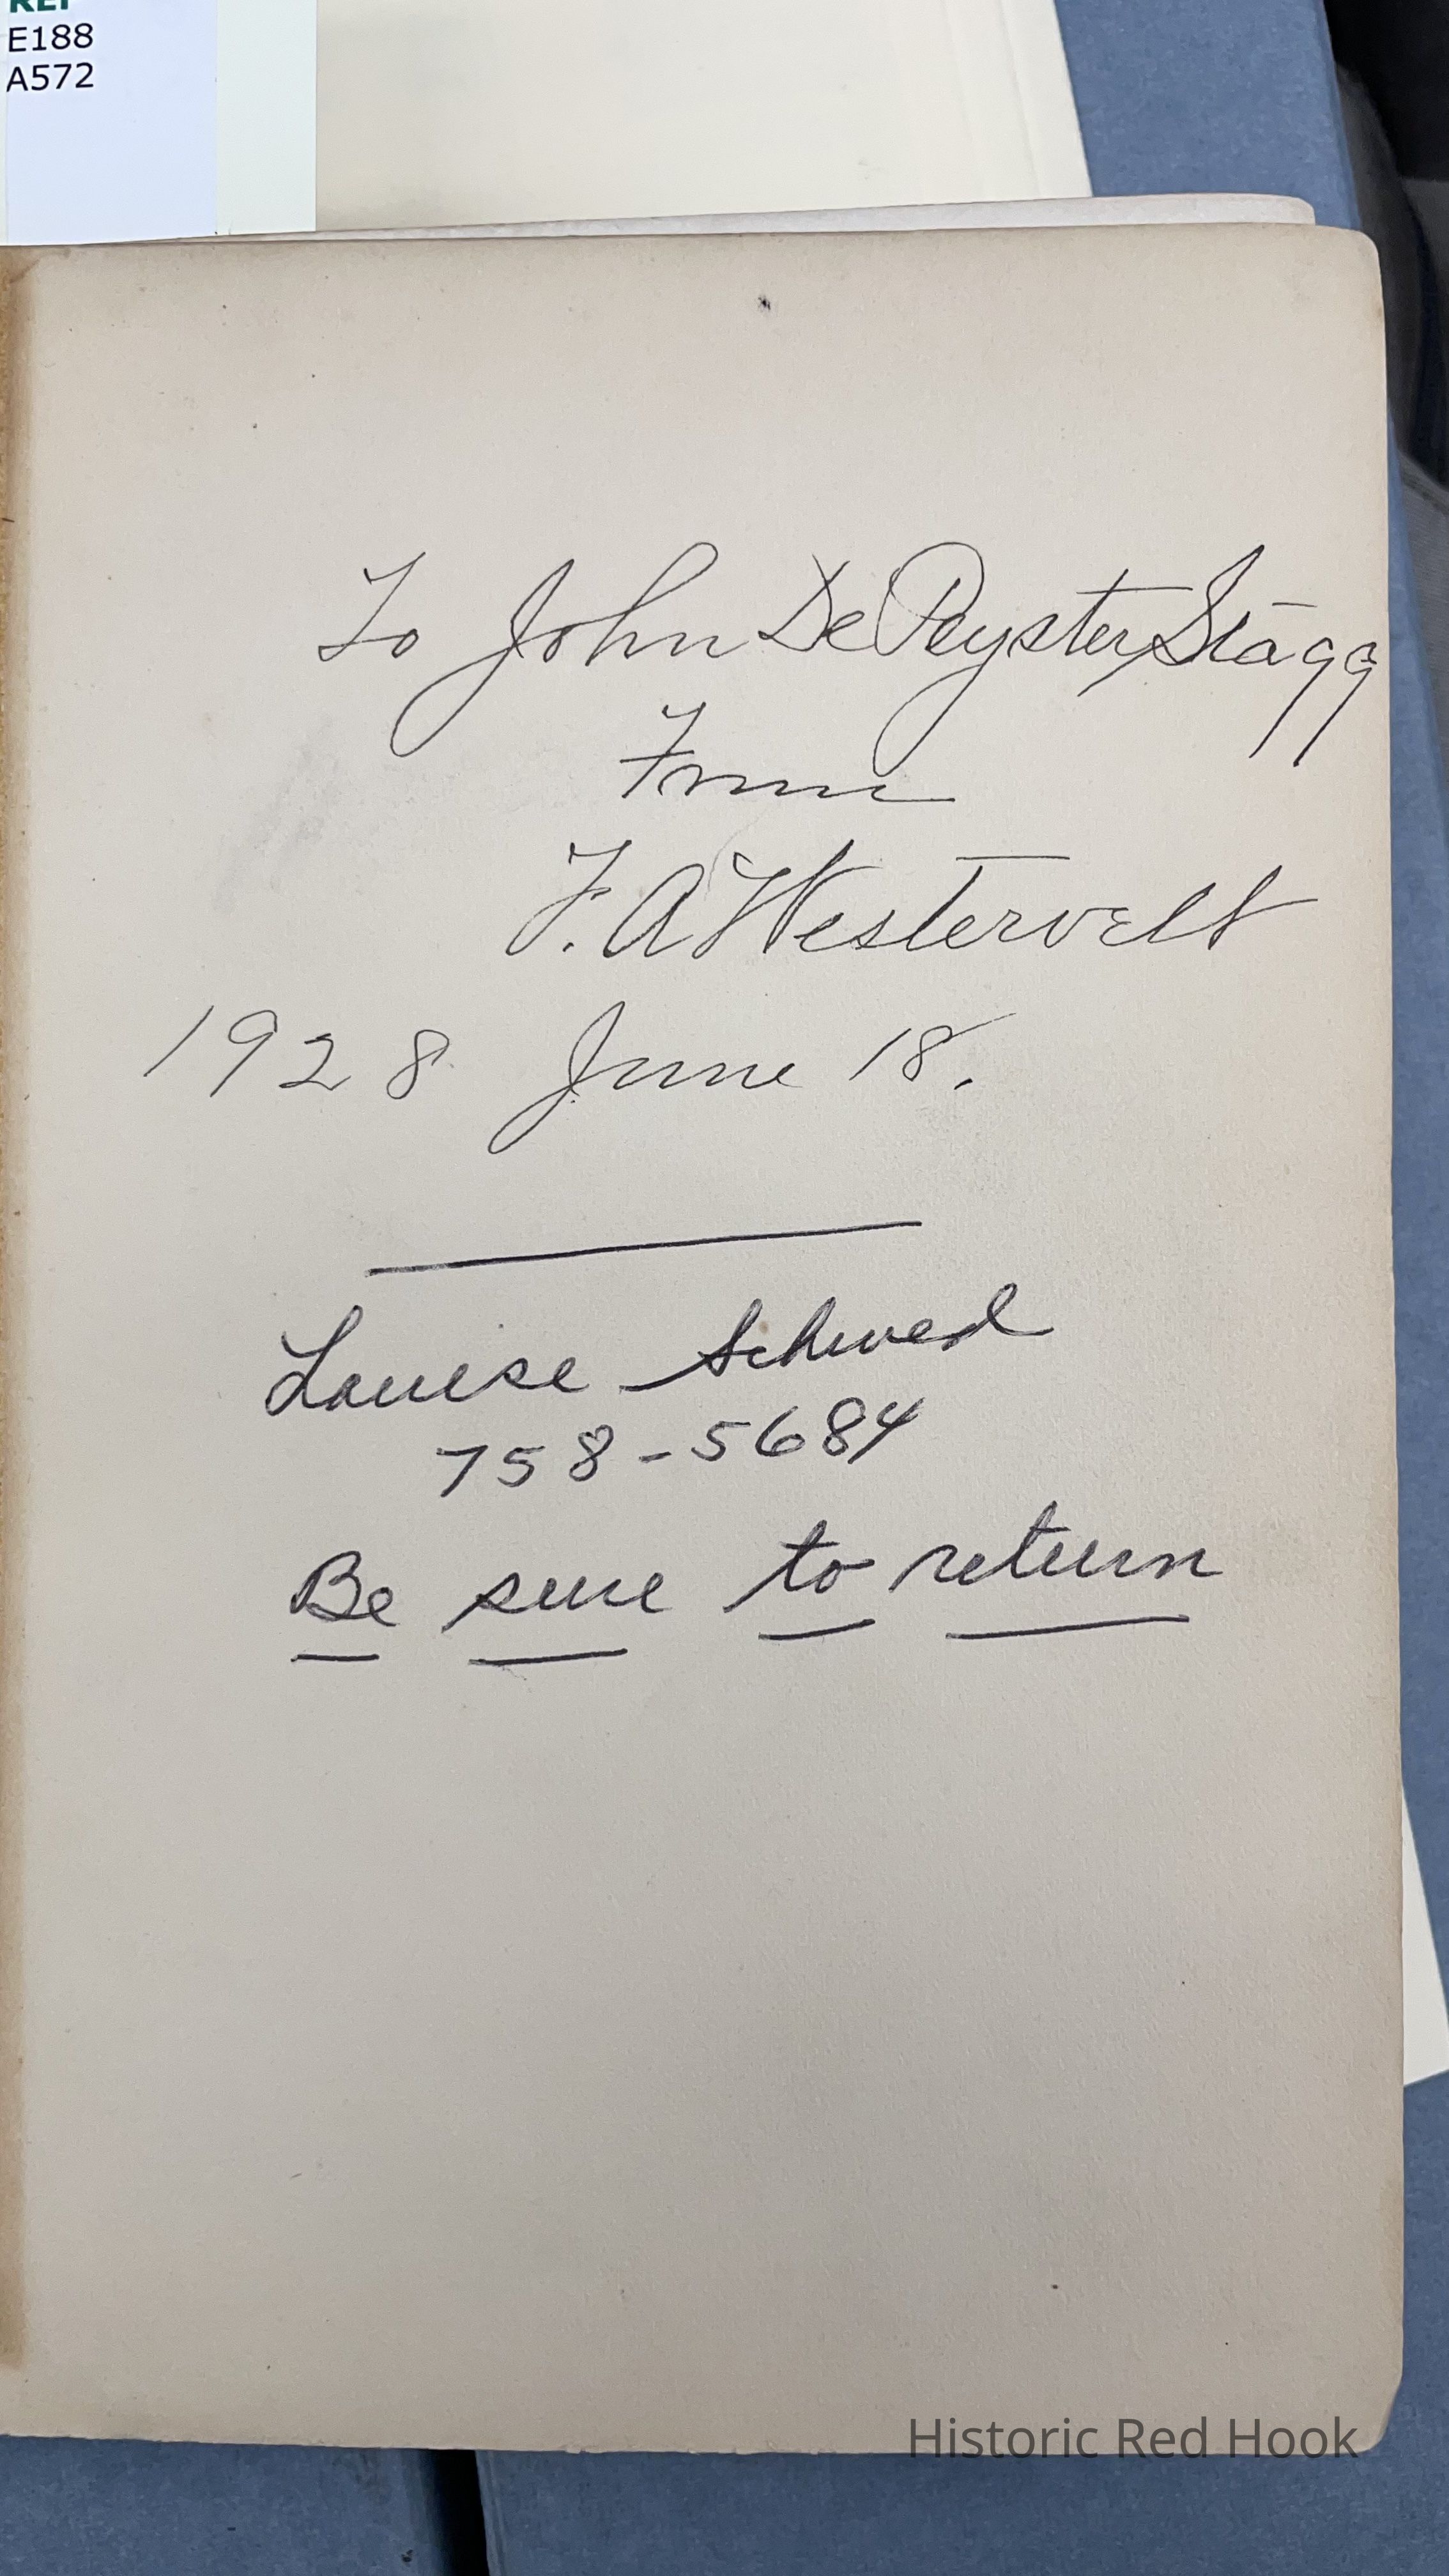 REF
E188
A572
To John De Peyster Stagg
From
F. A Westervelt
1928 June 18.
Louise Schwed
758-5684
Be sure to return
Historic Red Hook